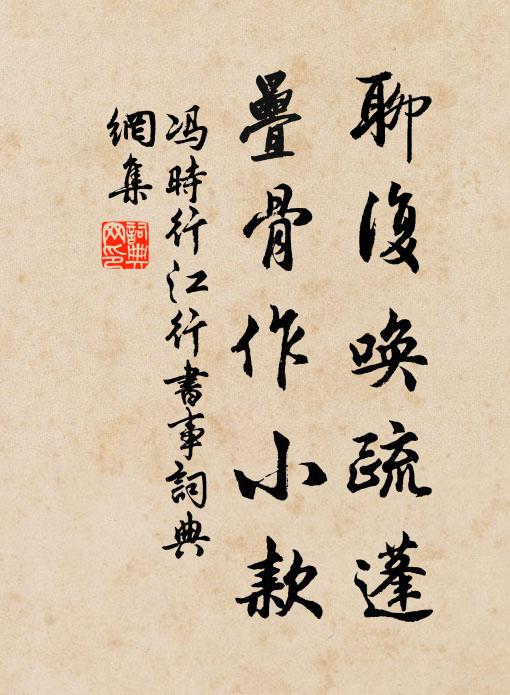 聊復唤疏蓬
疊骨作小款
冯時行江行書事詞典
網集
詞典網印